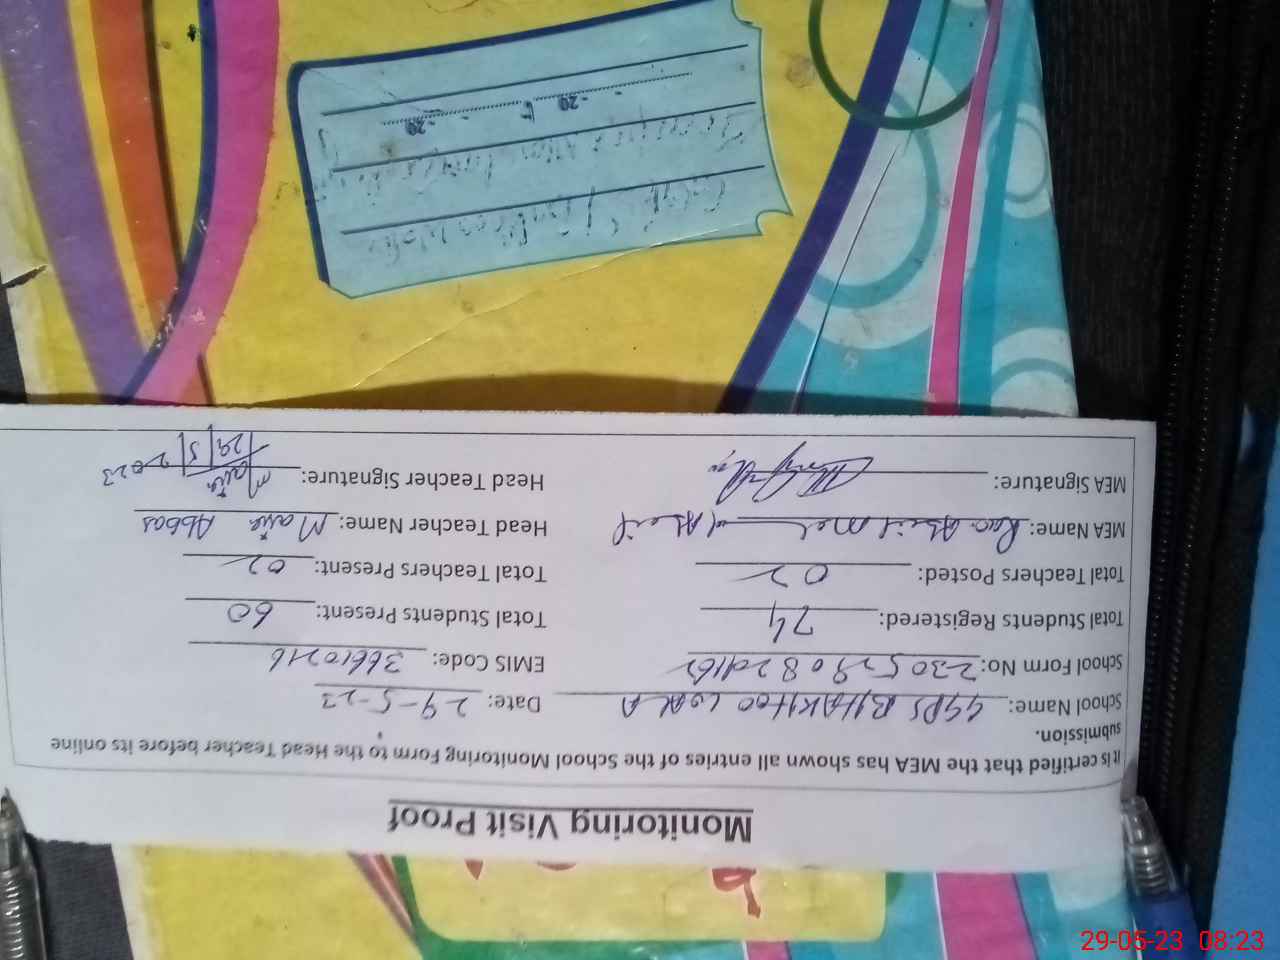 Monitoring Visit Proof
It is certified that the MEA has shown all entries of the School Monitoring Form to the Head Teacher before its online
submission.
School Name: GGPS BHAKHOO WALA Date: 29-5-23
School Form No: EMIS Code: 36610216
Total Students Registered: 74 Total Students Present: 60
Total Teachers Posted: 02 Total Teachers Present: 02
MEA Name: Head Teacher Name: Maria Abbas
MEA Signature: Head Teacher Signature: Maria
29/5/2023
-20
-20
29-05-23 08:23